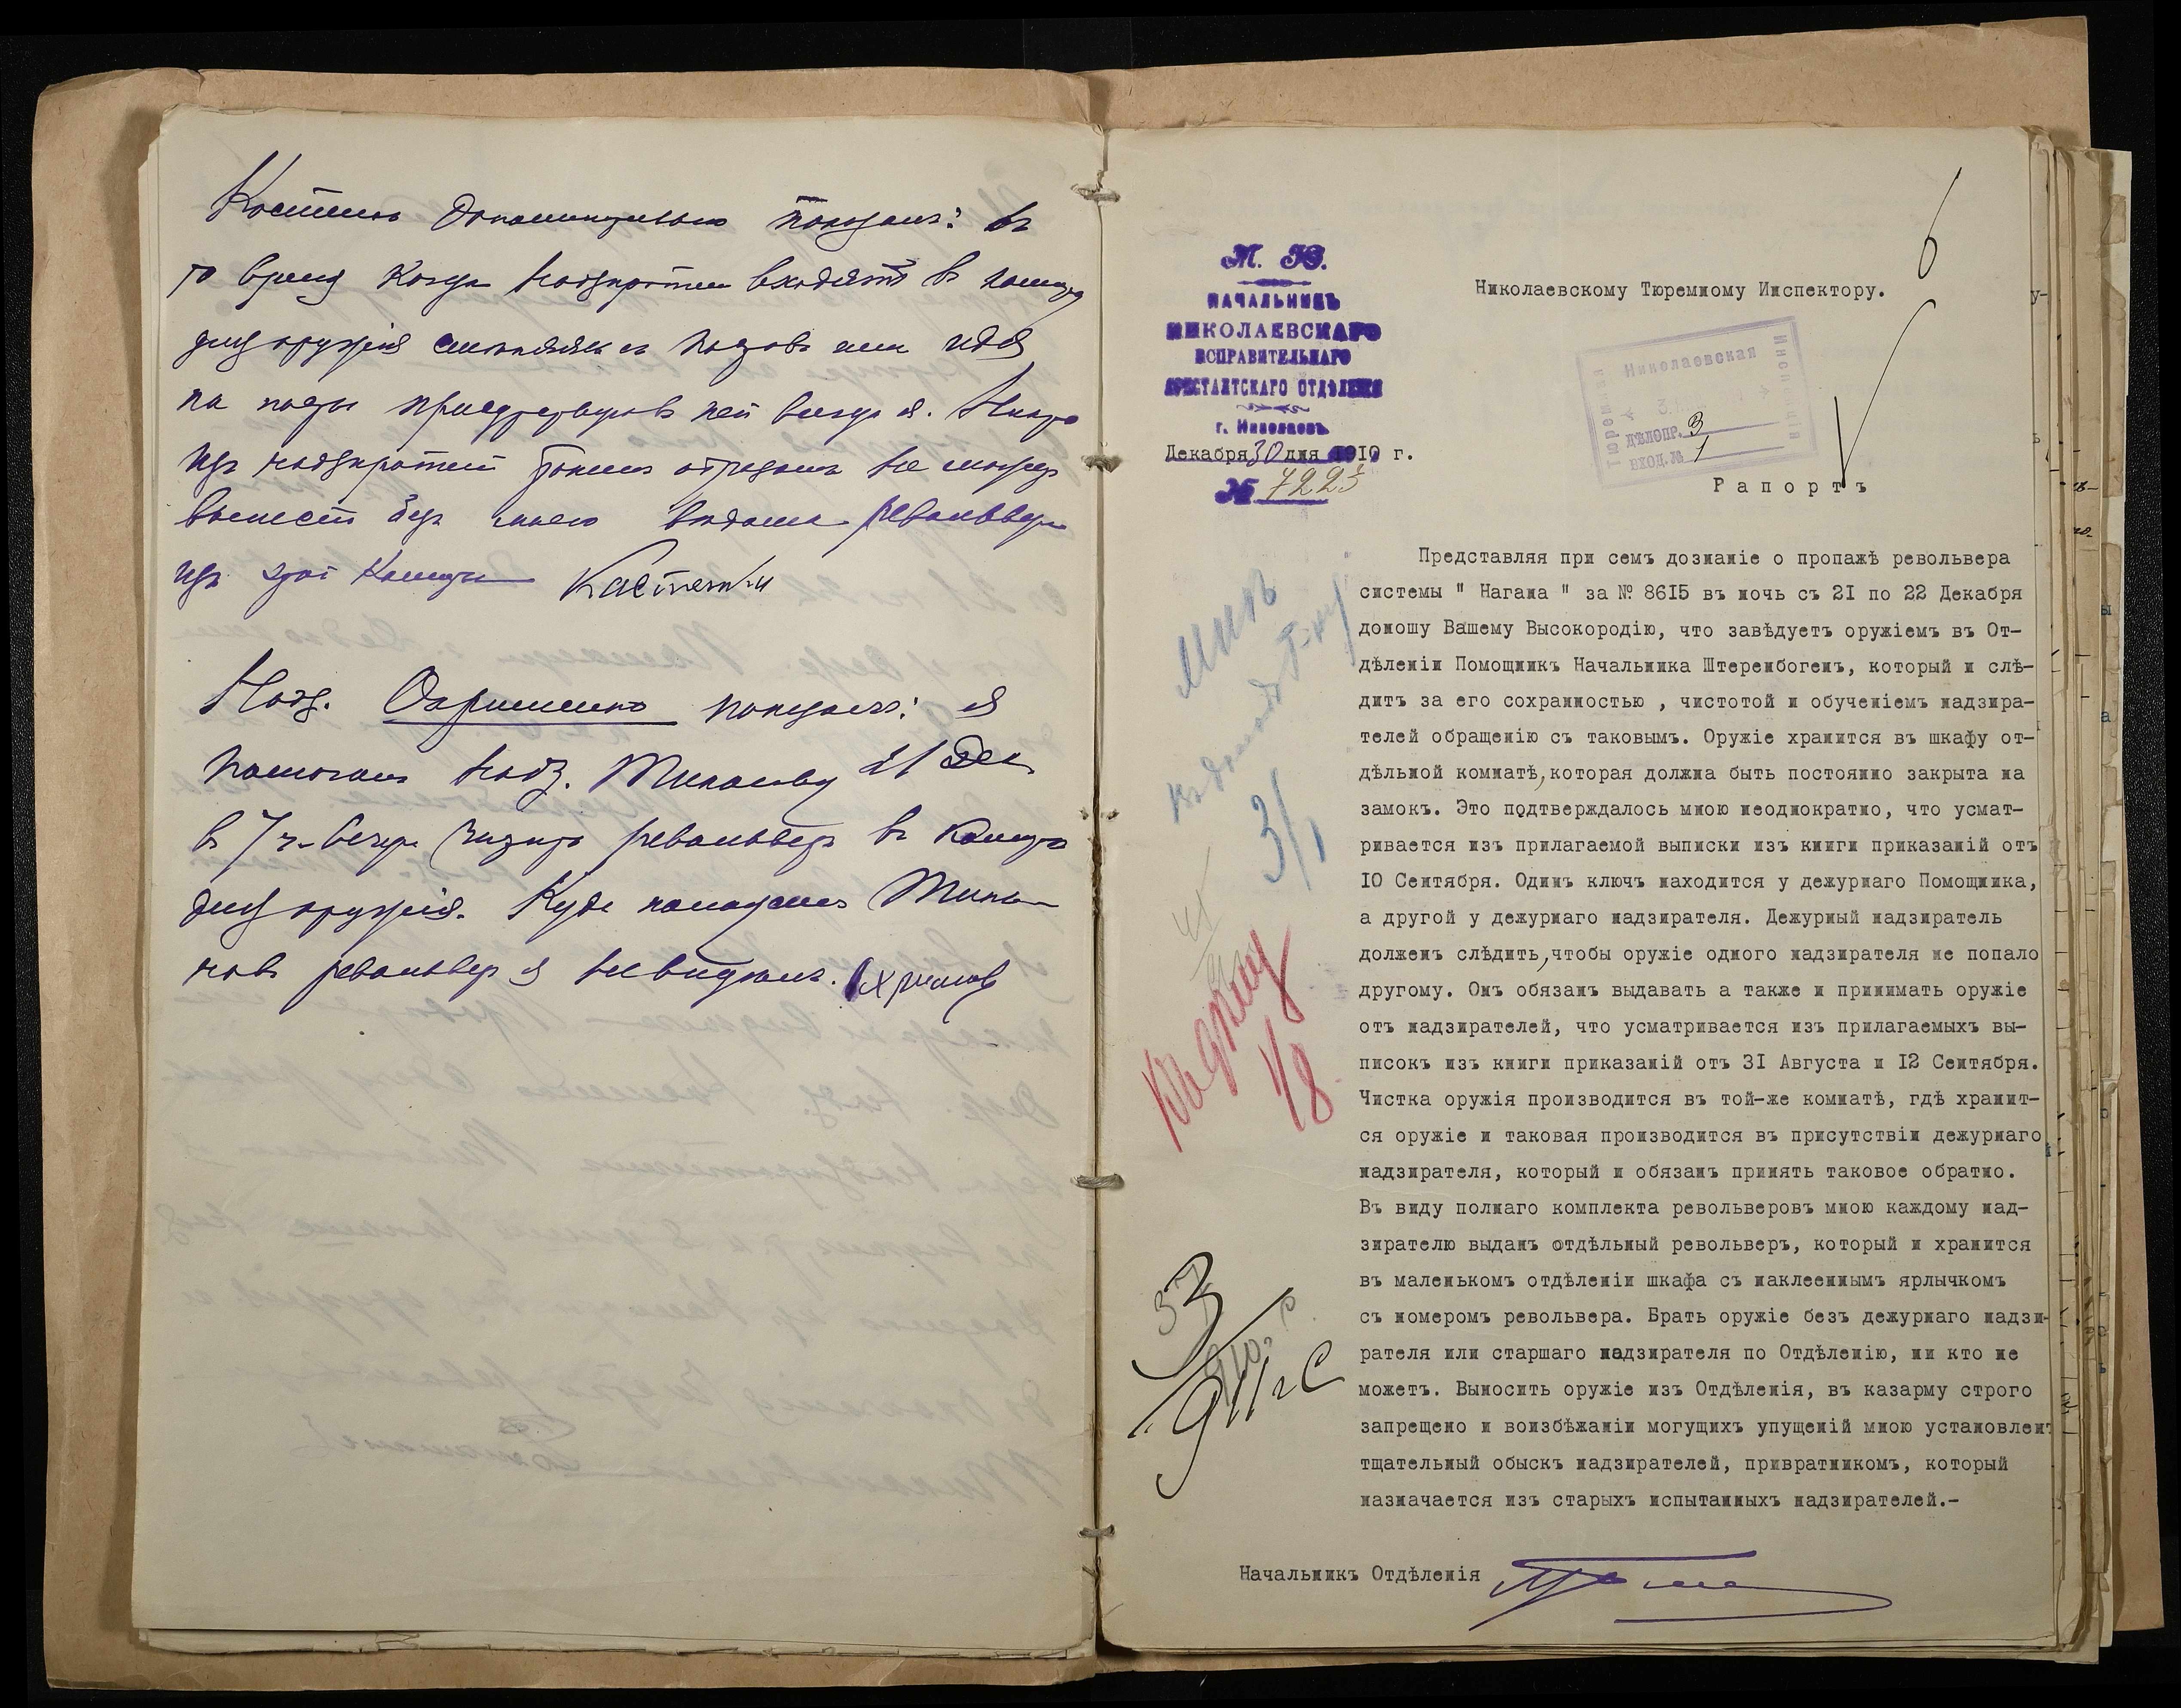 Костенко дополнительно показалъ: въ
то время когда надзиратели входятъ въ комнату
для оружія смѣняясь съ постовъ или идя
на посты присутствую въ ней всегда я. Никто
изъ надзирателей такимъ образомъ не можетъ
вынести безъ моего вѣдома револьвера
изъ этой комнаты Костенко
Надз. Охрименко показалъ: я
помогалъ надз. 21 Дек.
въ 7 ч. вечера чистить револьверъ въ комнатѣ
для оружія. Куда
револьверъ я не видѣлъ. Охрименко
М. Ю.
НАЧАЛЬНИКЪ
НИКОЛАЕВСКАГО
ИСПРАВИТЕЛЬНАГО
АРЕСТАНТСКАГО ОТДѢЛЕНІЯ
г. Николаевъ
Декабря 30 дня 1910 г.
№ 7223
6
Николаевскому Тюремному Инспектору.
Николаевская
Тюремная
Инспекція
ДѢЛОПР. 3
ВХОД. № 1
Рапортъ
Представляя при семъ дознаніе о пропажѣ револьвера
системы " Нагана " за № 8615 въ ночь съ 21 по 22 Декабря
доношу Вашему Высокородію, что завѣдуетъ оружіемъ въ От-
дѣленіи Помощникъ Начальника Штеренбогенъ, который и слѣ-
дитъ за его сохранностью , чистотой и обученіемъ надзира-
телей обращенію съ таковымъ. Оружіе хранится въ шкафу от-
дѣльной комнатѣ, которая должна быть постоянно закрыта на
замокъ. Это подтверждалось мною неоднократно, что усмат-
ривается изъ прилагаемой выписки изъ книги приказаній отъ
10 Сентября. Одинъ ключъ находится у дежурнаго Помощника,
а другой у дежурнаго надзирателя. Дежурный надзиратель
долженъ слѣдить, чтобы оружіе одного надзирателя не попало
другому. Онъ обязанъ выдавать а также и принимать оружіе
отъ надзирателей, что усматривается изъ прилагаемыхъ вы-
писокъ изъ книги приказаній отъ 31 Августа и 12 Сентября.
Чистка оружія производится въ той-же комнатѣ, гдѣ хранит-
ся оружіе и таковая производится въ присутствіи дежурнаго
надзирателя, который и обязанъ принять таковое обратно.
Въ виду полнаго комплекта револьверовъ мною каждому над-
зирателю выданъ отдѣльный револьверъ, который и хранится
въ маленькомъ отдѣленіи шкафа съ наклееннымъ ярлычкомъ
съ номеромъ револьвера. Брать оружіе безъ дежурнаго надзи-
рателя или старшаго надзирателя по Отдѣленію, ни кто не
можетъ. Выносить оружіе изъ Отдѣленія, въ казарму строго
запрещено и воизбѣжаніи могущихъ упущеній мною установленъ
тщательный обыскъ надзирателей, привратникомъ, который
назначается изъ старыхъ испытанныхъ надзирателей.-
3/1
Къ дѣлу
1/8
33
911 г
Начальникъ Отдѣленія